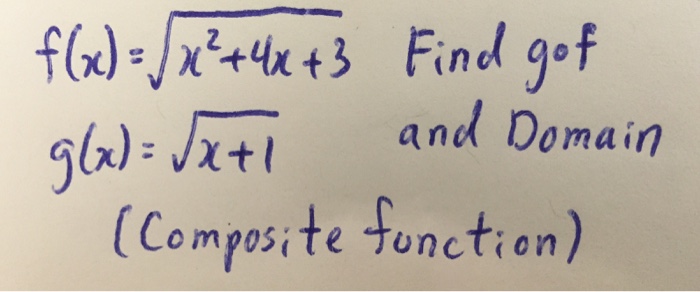 f(x)=√x²+4x+3 Find gof
g(x)=√x+1 and Domain
(Composite function)